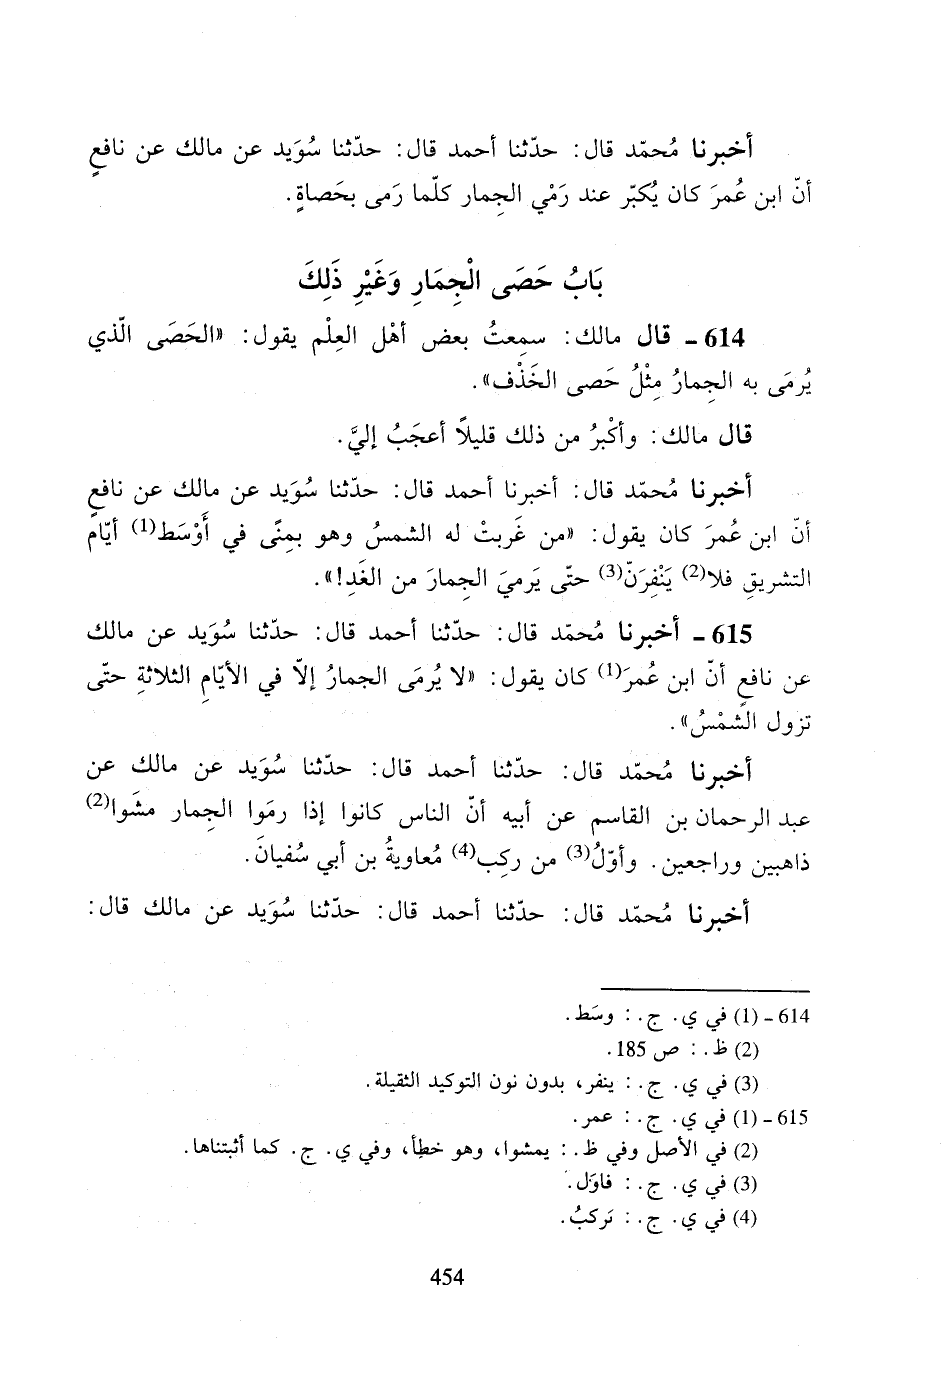 أخبرنا مُحمّد قال: حدّثنا أحمد قال: حدّثنا سُوَيد عن مالك عن نافعٍ
أنّ ابن عُمرَ كان يُكبّر عند رَمْي الجِمار كلّما رَمى بحَصاةٍ.
بَابُ حَصَى الْجِمَارِ وَغَيْرِ ذَلِكَ
614 - قال مالك: سمِعتُ بعض أهْل العِلْم يقول: «الحَصَى الّذي
يُرمَى به الجِمارُ مِثْلُ حَصى الخَذْف».
قال مالك: وأكْبرُ من ذلك قليلاً أعجَبُ إليَّ.
أخبرنا مُحمّد قال: أخبرنا أحمد قال: حدّثنا سُوَيد عن مالك عن نافعٍ
أنّ ابن عُمرَ كان يقول: «من غَربتْ له الشمسُ وهو بمِنًى في أَوْسَط(1) أيّام
التشريقِ فلا(2) يَنْفِرَنّ(3) حتّى يَرميَ الجِمارَ من الغَدِ!».
615 - أخبرنا مُحمّد قال: حدّثنا أحمد قال: حدّثنا سُوَيد عن مالك
عن نافعٍ أنّ ابن عُمرَ(1) كان يقول: «لا يُرمَى الجمارُ إلاّ في الأيّامِ الثلاثةِ حتّى
تزول الشمْسُ».
أخبرنا مُحمّد قال: حدّثنا أحمد قال: حدّثنا سُوَيد عن مالك عن
عبد الرحمان بن القاسم عن أبيه أنّ الناس كانوا إذا رمَوا الجِمار مشَوا(2)
ذاهبين وراجعين. وأوّلُ(3) من ركِب(4) مُعاويةُ بن أبي سُفيانَ.
أخبرنا مُحمّد قال: حدّثنا أحمد قال: حدّثنا سُوَيد عن مالك قال:
614 - (1) في ي. ج. : وسَط.
(2) ظ. : ص 185.
(3) في ي. ج. : ينفر، بدون نون التوكيد الثقيلة.
615 - (1) في ي. ج. : عمر.
(2) في الأصل وفي ظ. : يمشوا، وهو خطأ، وفي ي. ج. كما أثبتناها.
(3) في ي. ج. : فاوَل.
(4) في ي. ج. : تركبُ.
454